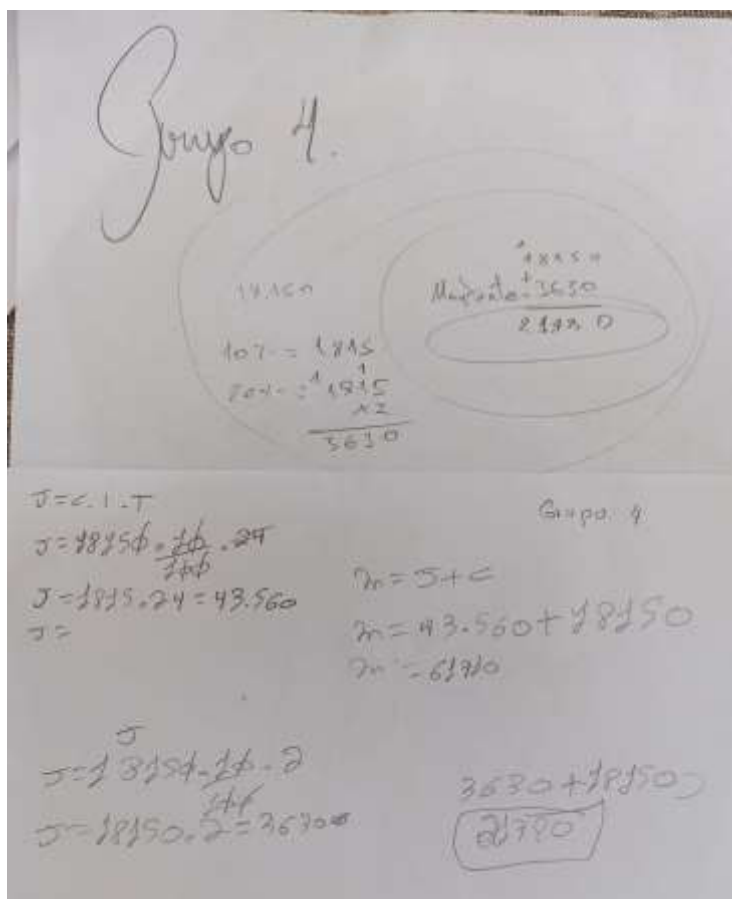 Grupo 4.
18150
18.150
Montante + 3630
21780
10% = 1815
20% = 1815
x2
3630
J=C.I.T
Grupo 4
J=18150.10/100.24
J=1815.24=43.560
J=
m=J+C
m=43.560+18150
m=61710
J
J=18150.10/100.2
J=18150.2=3630
3630+18150=
21780